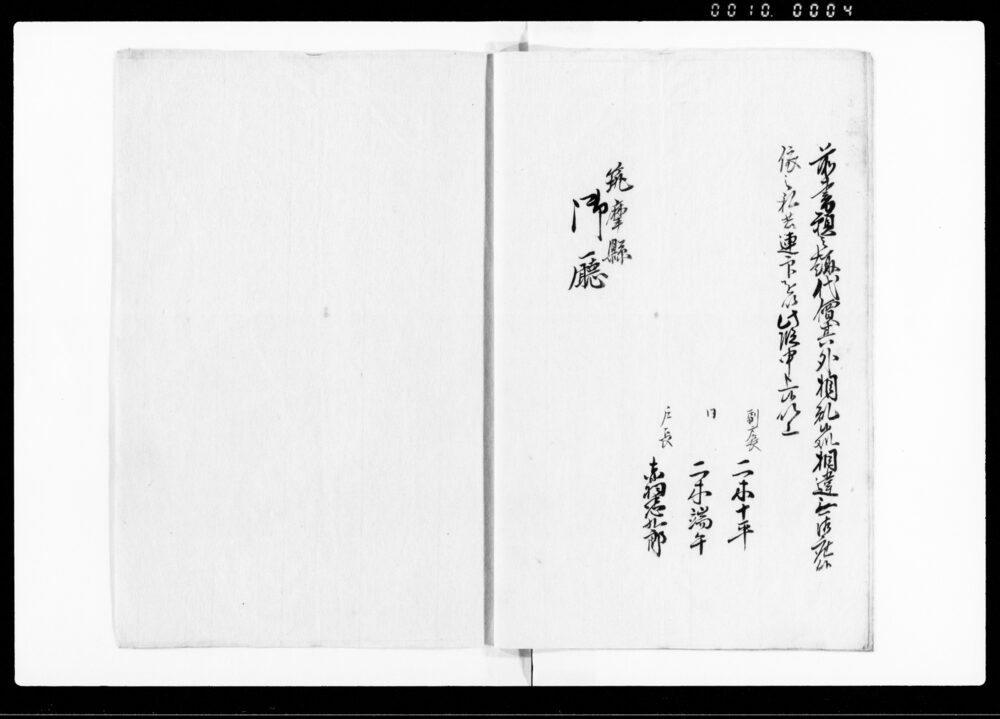 0010. 0004
前書題之趣代價其外相糺候處相違無御座候
依之私共連印を以此段申上候以上
副戸長 二木十平
同 二木端午
戸長 赤羽
筑摩縣
御廳